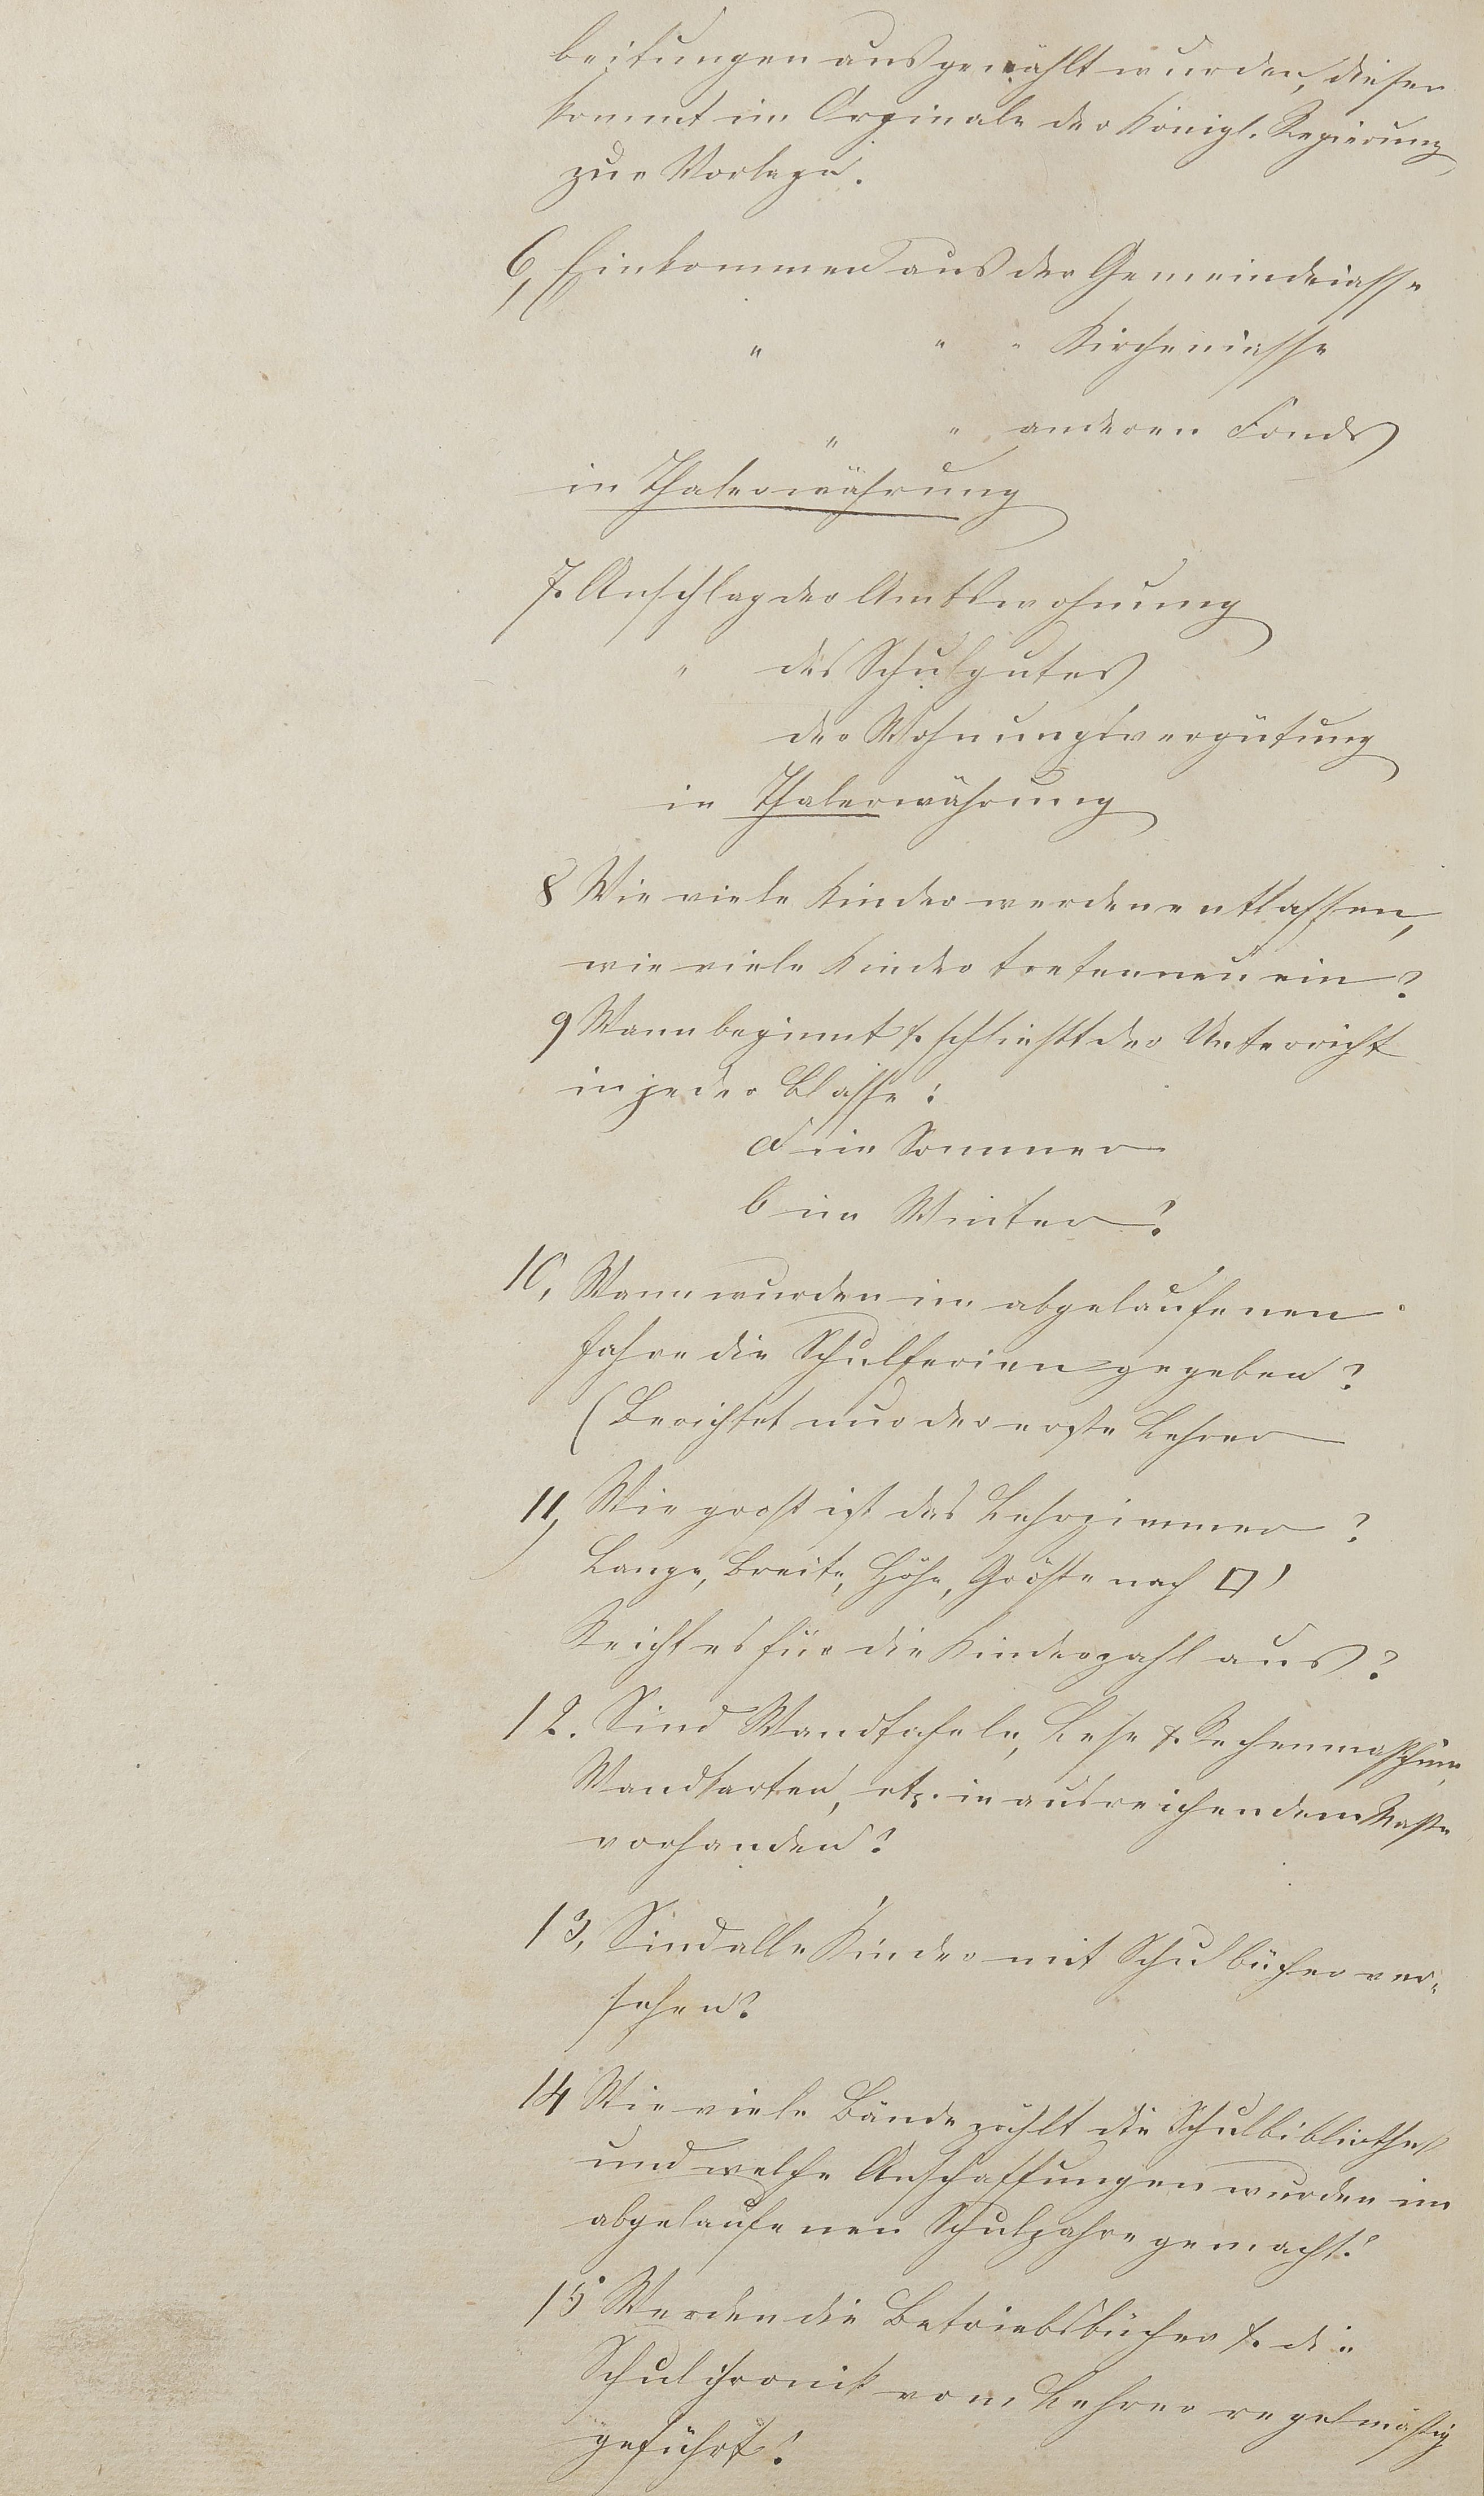 beitungen ausgewählt wurden, dieser
kommt im Orginale der Königl. Regierung
zur Vorlage.
6, Einkommen aus der Gemeindecasse
" " " Kirchencasse
" " anderen Fonds
in Thalerwährung
7. Anschlag der Amtswohnung
" des Schulgutes
der Wohnungsvergütung
in Thalerwährung
8 Wie viele Kinder werden entlassen,
wie viele Kinder treten neu ein?
9 Wann beginnt & schließt der Unterricht
in jeder Classe:
a im Sommer
b im Winter?
10, Wann wurden im abgelaufenen
Jahre die Schulferien gegeben?
(Berichtet nur der erste Lehrer
11, Wie groß ist das Lehrzimmer?
Länge, Breite, Höhe, Größe nach □'
Reicht es für die Kinderzahl aus?
12. Sind Wandtafeln, Lese & Rechenmaschine,
Wandkarten, etz. in ausreichendem Maße
vorhanden?
13, Sind alle Kinder mit Schulbücher ver-
sehen?
14 Wie viele Bände zählt die Schulbibliothek
und welche Anschaffungen wurden im
abgelaufenen Schuljahre gemacht?
15 Werden die Betriebsbücher & die
Schulchronik vom Lehrer regelmäßig
geführt?